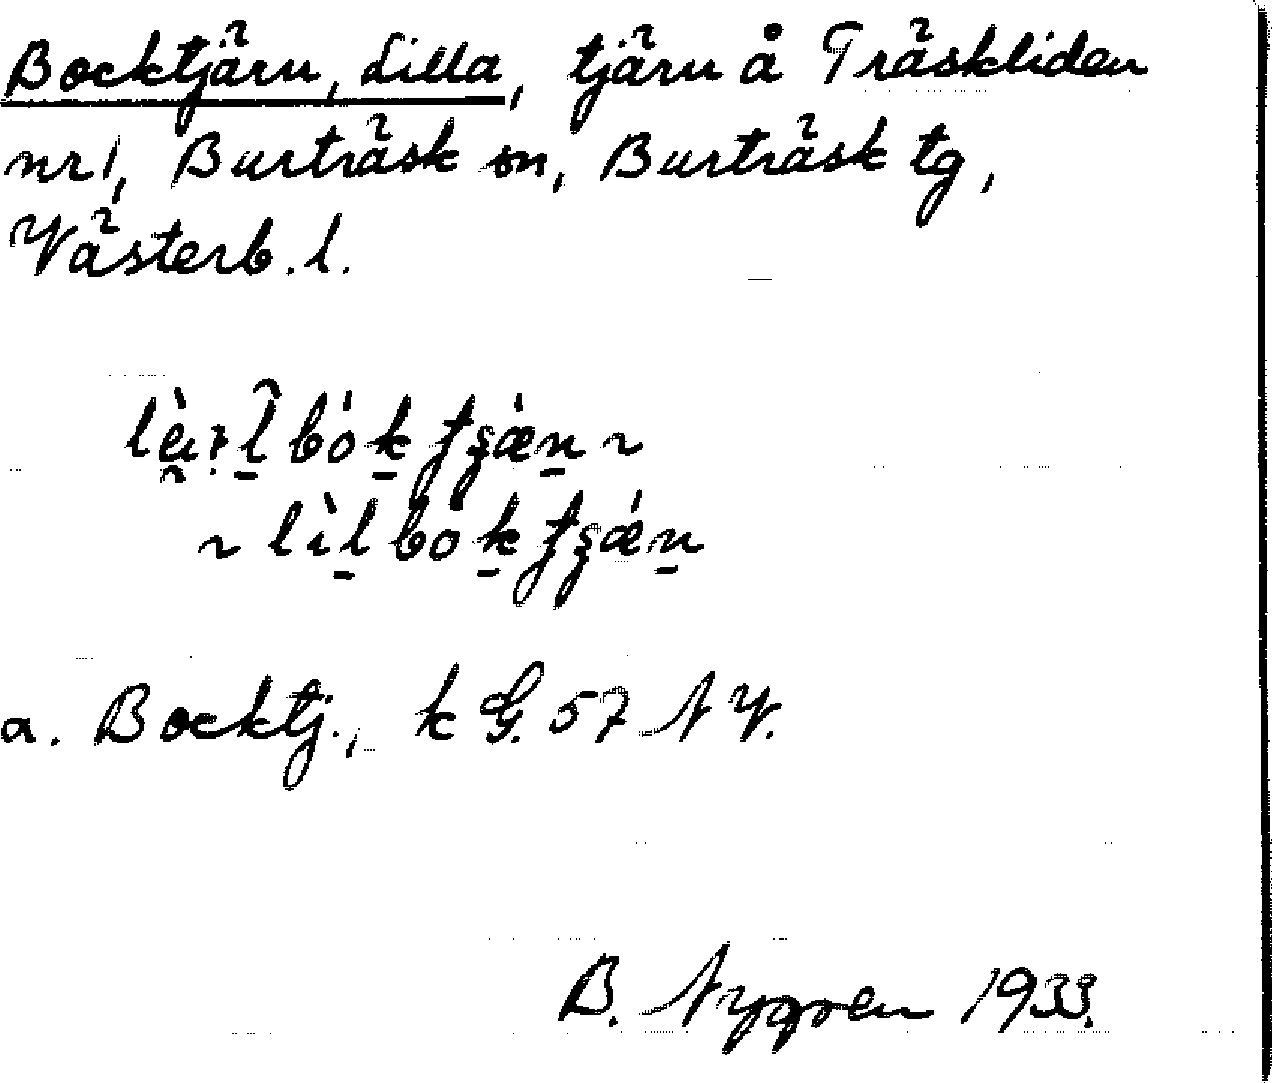 Bocktjärn, Lilla, tjärn å Träskliden
nr 1, Burträsk sn, Burträsk tg,
Västerb. l.
~ lìl bók
a. Bocktj., k G. 57 NV.
B. Nygren 1933.